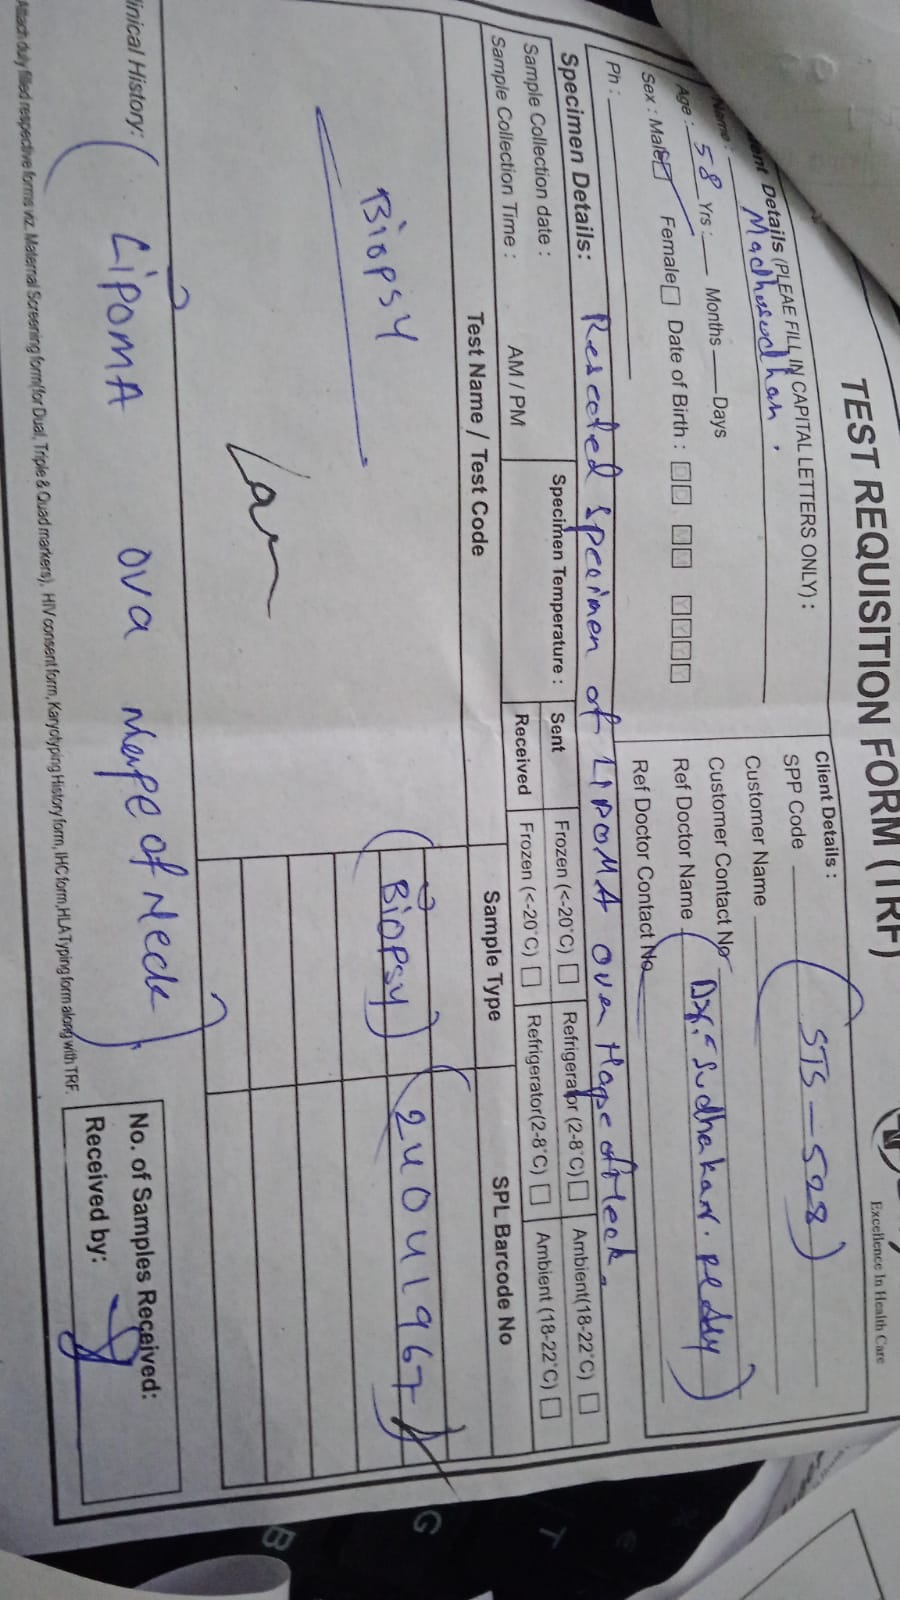 TEST REQUISITION FORM (TRF)
Excellence In Health Care
Details (PLEAE FILL IN CAPITAL LETTERS ONLY) :
Name : Madhusudhan.
Age : 58 Yrs : Months Days
Sex : Male Female Date of Birth :
Ph :
Client Details :
SPP Code STS-528
Customer Name
Customer Contact No
Ref Doctor Name Dr. Sudhakar. reddy
Ref Doctor Contact No
Specimen Details: Resceted specimen of LIPOMA over Nape of Neck.
Sample Collection date :
Sample Collection Time : AM / PM
Specimen Temperature :
Sent Frozen (<-20°C) Refrigerator (2-8°C) Ambient(18-22°C)
Received Frozen (<-20°C) Refrigerator(2-8°C) Ambient (18-22°C)
Test Name / Test Code Sample Type SPL Barcode No
Biopsy Biopsy 240041967
Clinical History: LipomA ova Nape of Neck
No. of Samples Received:
Received by:
Attach duly filled respective forms viz. Maternal Screening form(for Dual, Triple & Quad markers), HIV consent form, Karyotyping History form, IHC form,HLA Typing form along with TRF.